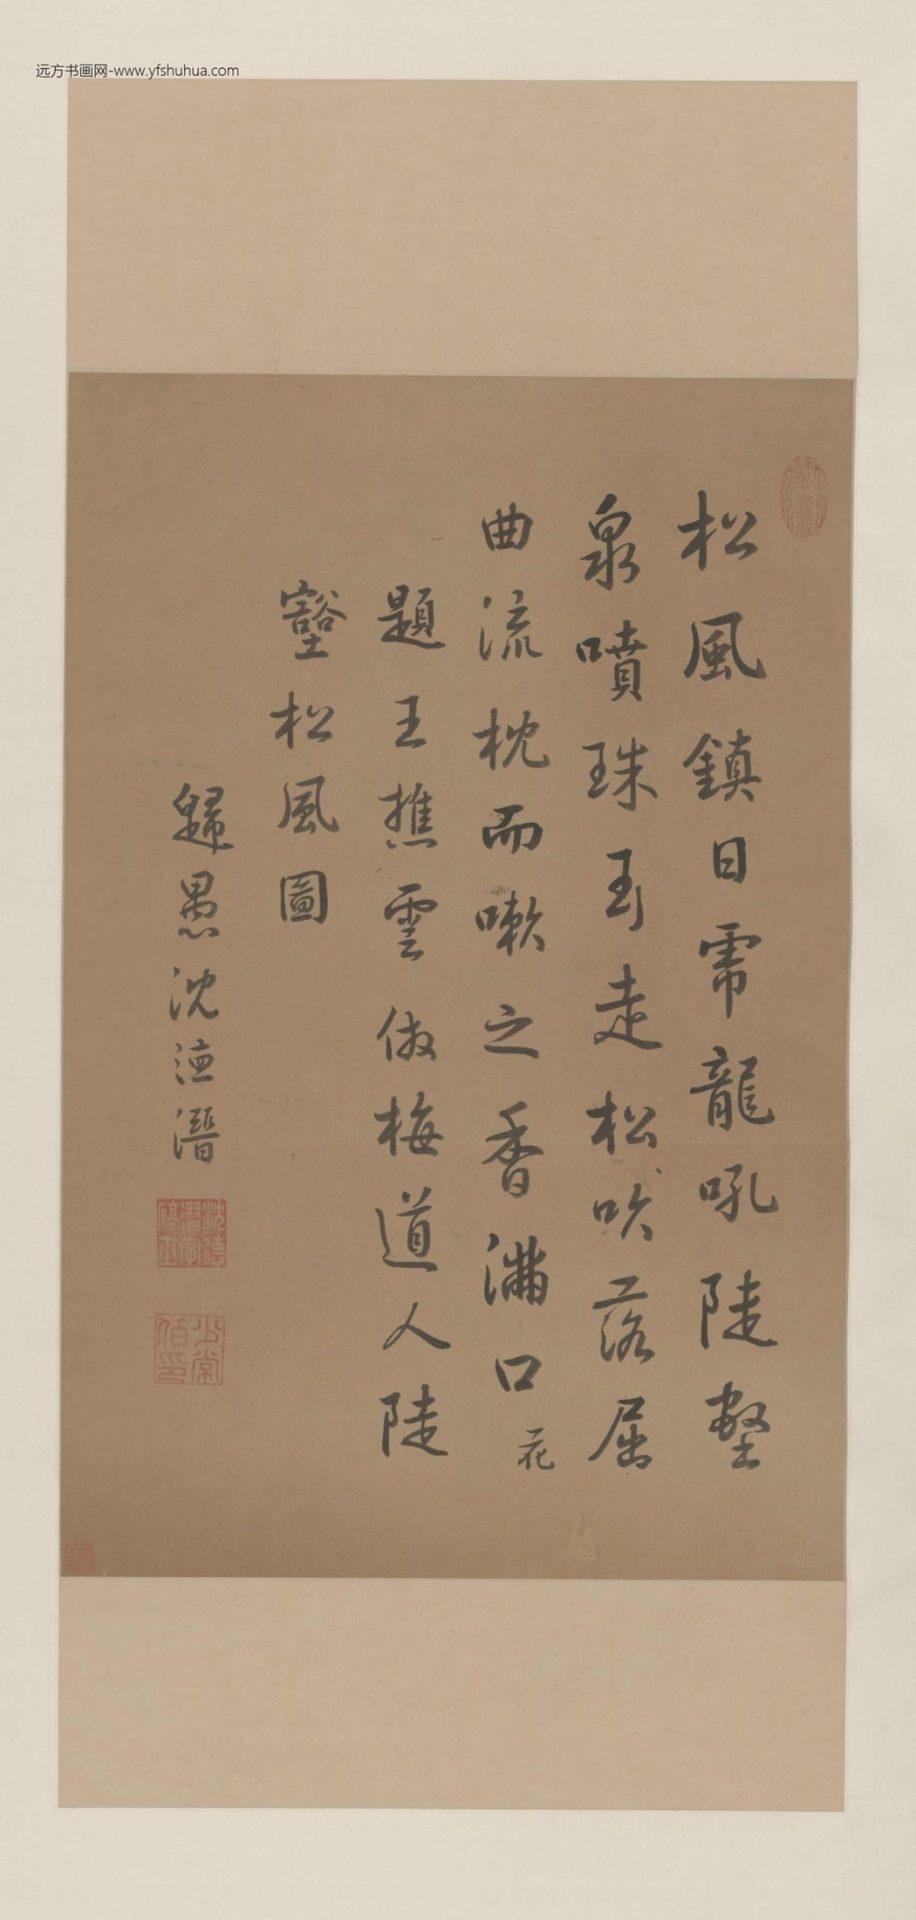 远方书画网-www.yfshuhua.com
松風鎮日帘龍吼陡壑
泉噴珠玉走松吹落屈
曲流枕而嗽之香滿口
花
題王樵雲倣梅道人陡
壑松風圖
歸愚沈德潛
沈德潛字碻士
少常伯印